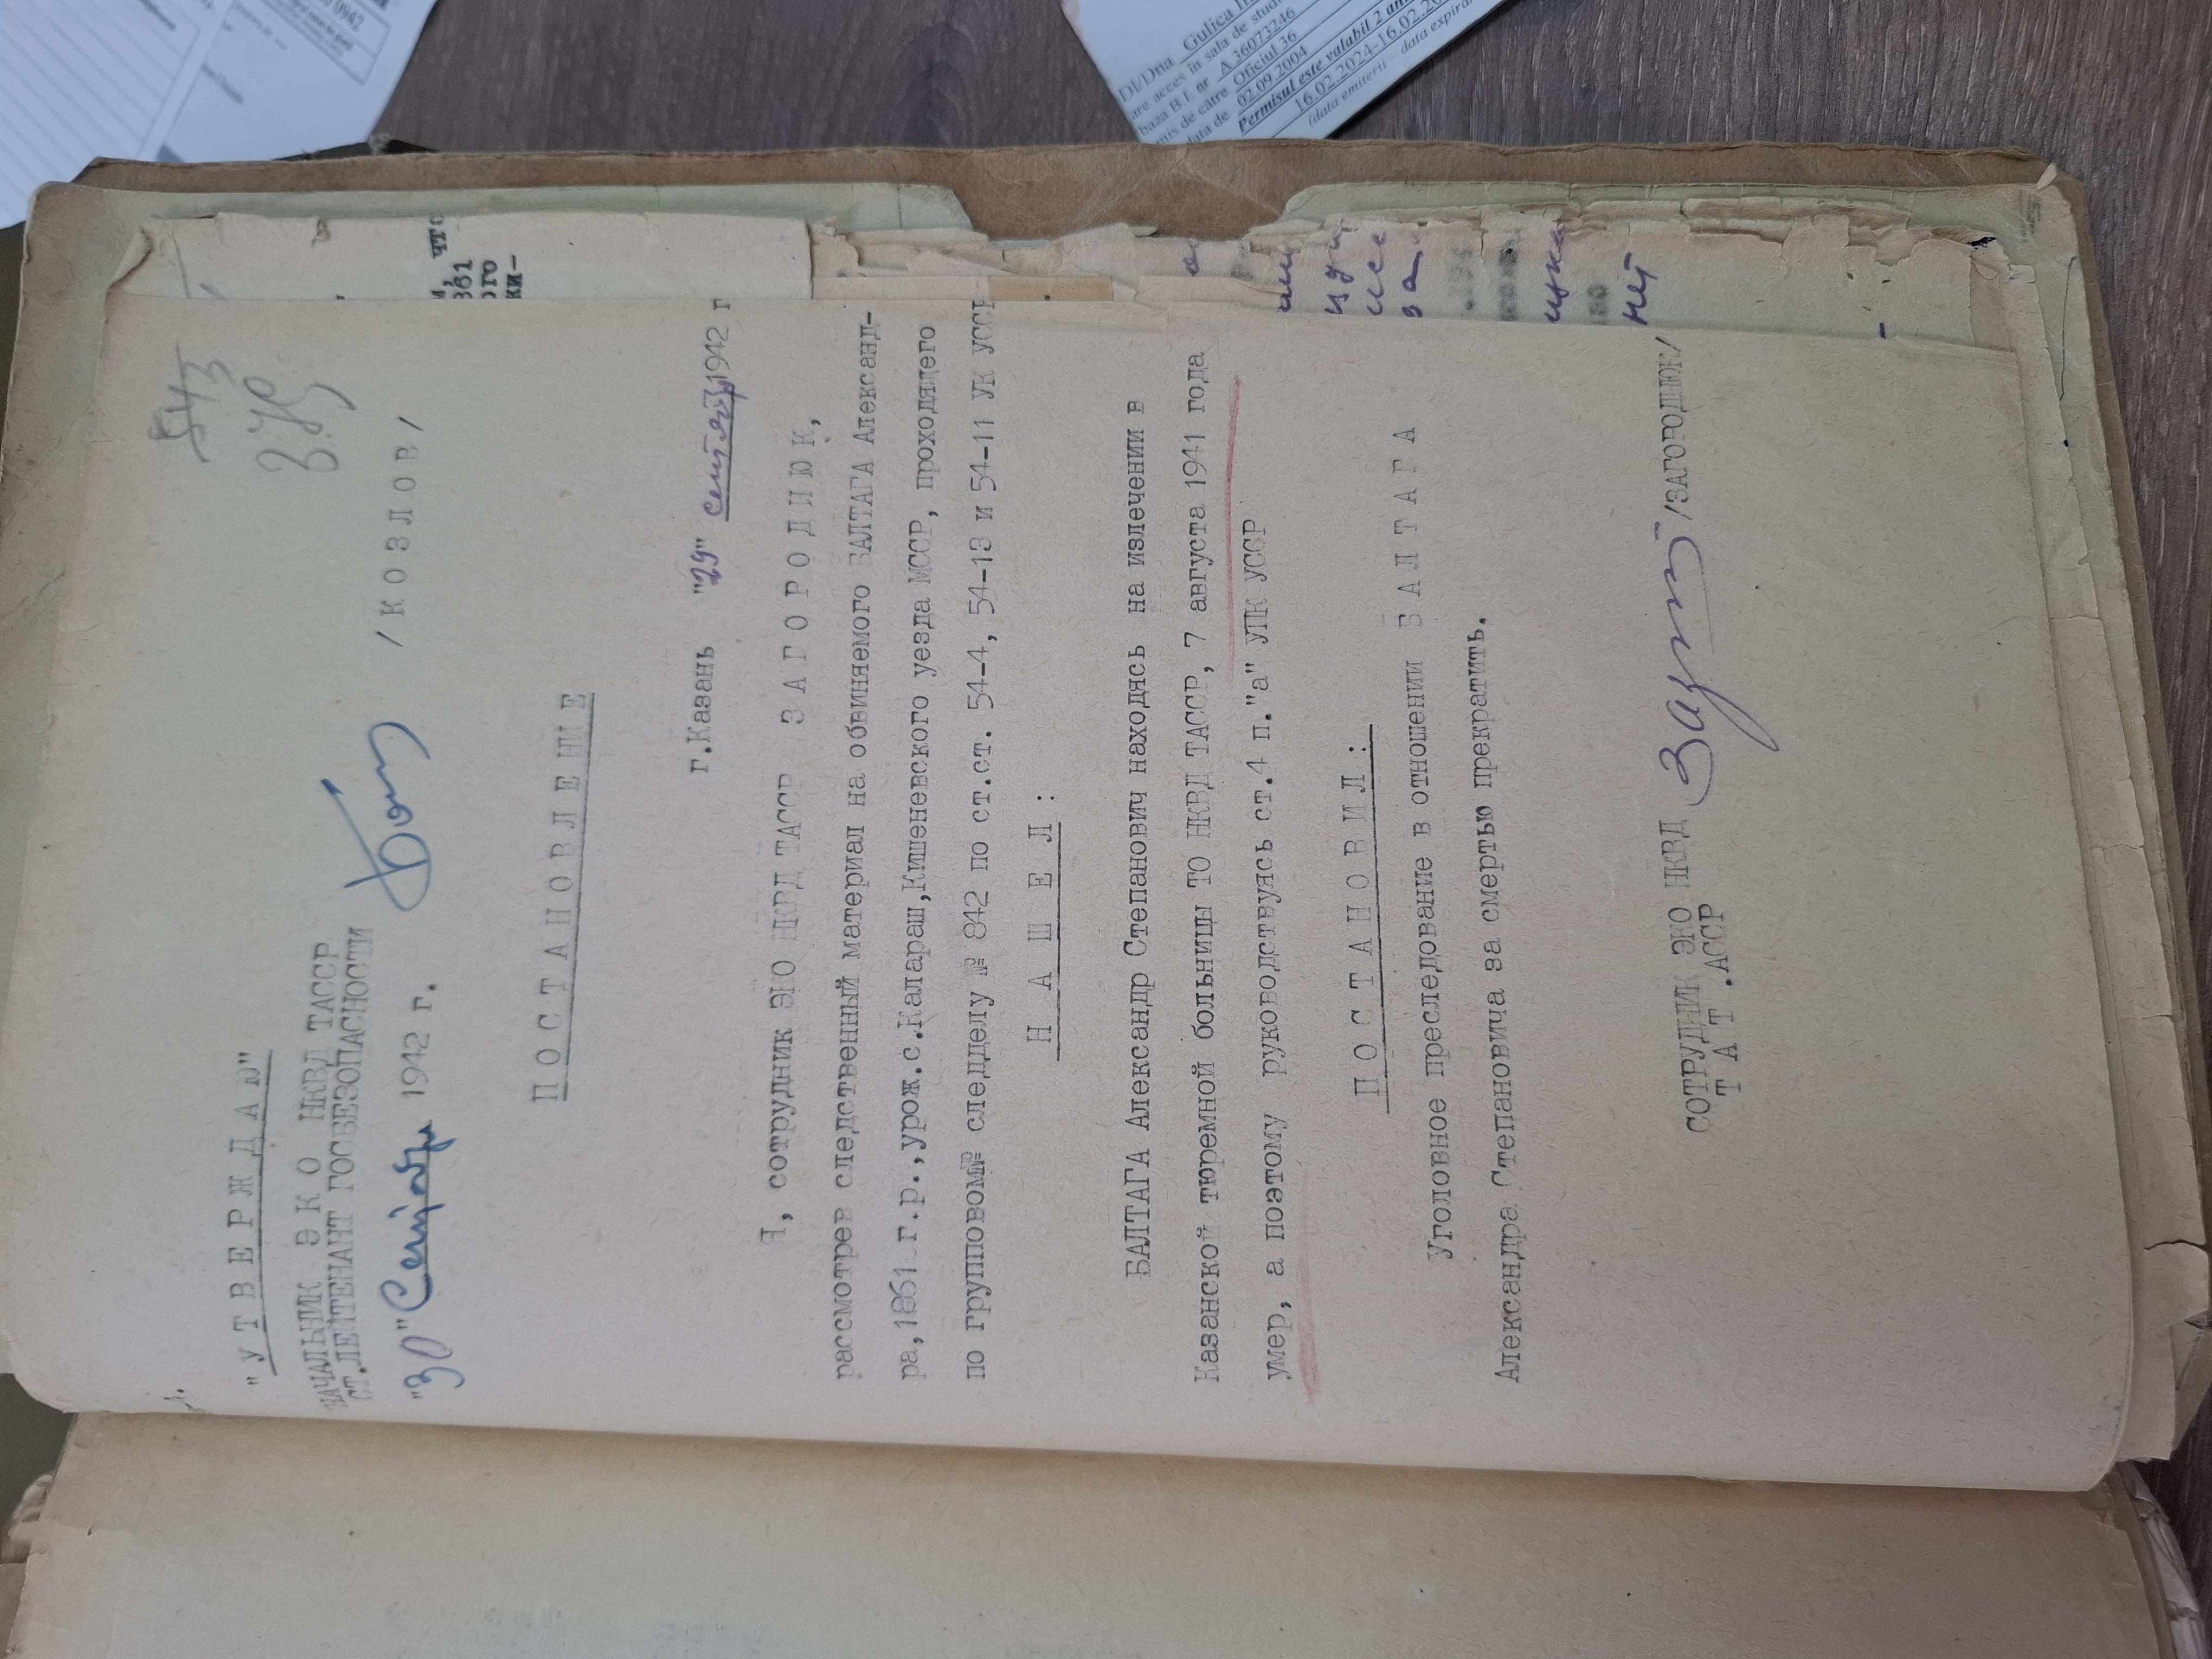 543
"УТВЕРЖДАЮ"
НАЧАЛЬНИК ЭКО НКВД ТАССР
СТ.ЛЕЙТЕНАНТ ГОСБЕЗОПАСНОСТИ
/КОЗЛОВ/
"30" Сентября 1942 г.
ПОСТАНОВЛЕНИЕ
г.Казань "29" сентября 1942 г
Я, сотрудник ЭКО НКВД ТАССР ЗАГОРОДНЮК,
рассмотрев следственный материал на обвиняемого БАЛТАГА Александ-
ра,1861 г.р.,урож.с.Калараш,Кишеневского уезда МССР, проходящего
по групповом№ следделу № 842 по ст.ст. 54-4, 54-13 и 54-11 УК УССР
НАШЕЛ:
БАЛТАГА Александр Степанович находясь на излечении в
Казанской тюремной больницы ТО НКВД ТАССР, 7 августа 1941 года
умер, а поэтому руководствуясь ст.4 п."а" УПК УССР
ПОСТАНОВИЛ:
Уголовное преследование в отношении БАЛТАГА
Александра Степановича за смертью прекратить.
СОТРУДНИК ЭКО НКВД
ТАТ.АССР
/ЗАГОРОДНЮК/
что
ого
ки-
нет
0942
Dl/Dna Gulica
are acces în sala de studi
baza B.I. nr A 36073246
is de către Oficiul 36
data de 02.09.2004
Permisul este valabil 2 ani
16.02.2024-16.02.20
(data emiterii data expira